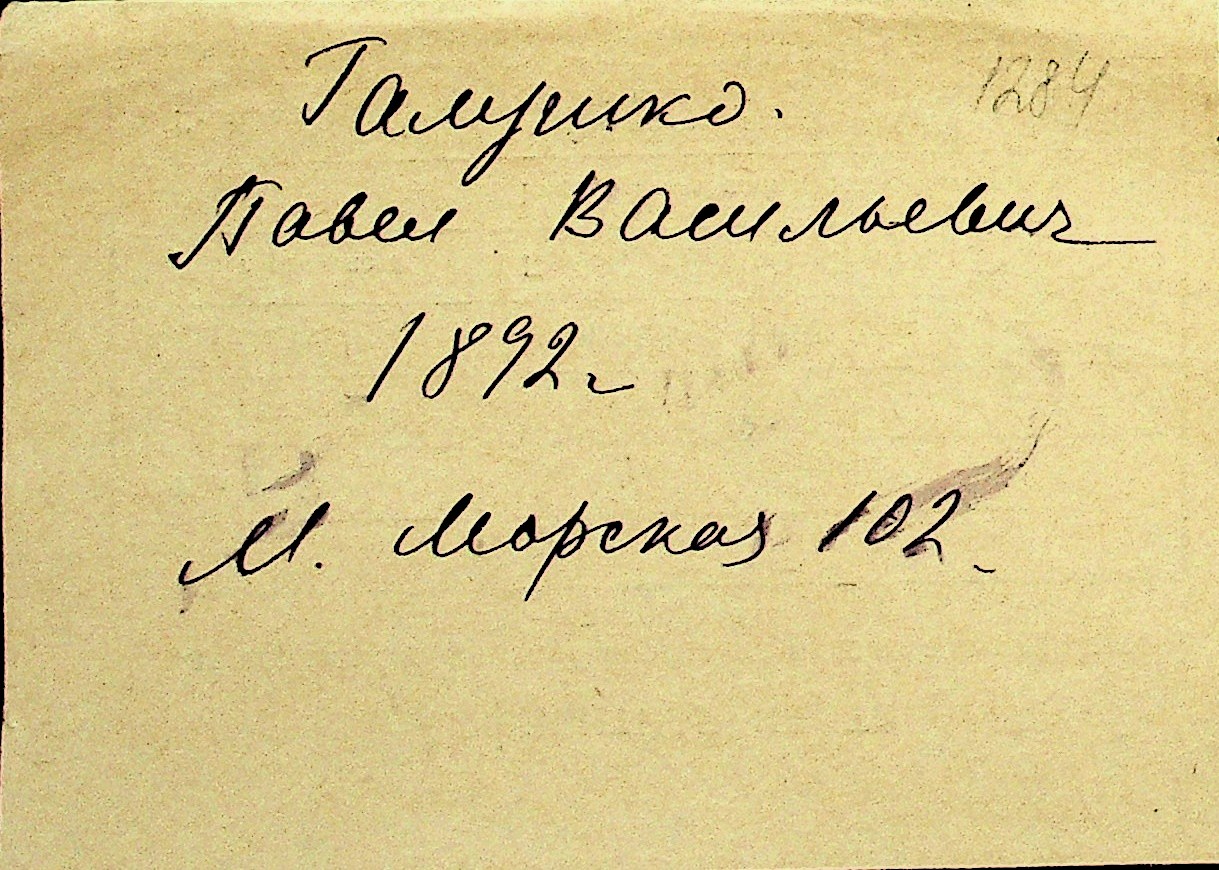 1284
Галушко.
Павел Васильевич
1892 г
М. Морская 102.